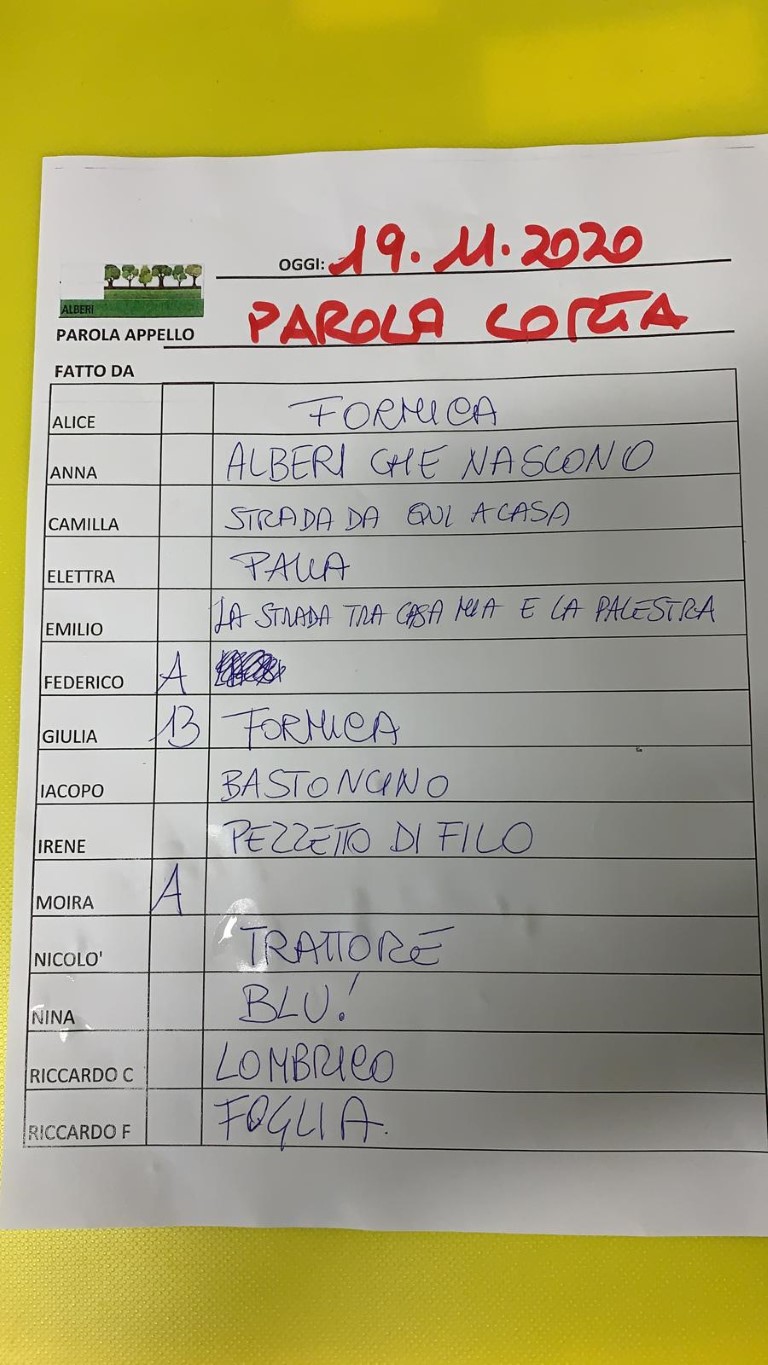 OGGI: 19.11.2020
ALBERI
PAROLA APPELLO PAROLA CORTA
FATTO DA
ALICE FORMICA
ANNA ALBERI CHE NASCONO
CAMILLA STRADA DA QUI A CASA
ELETTRA PALLA
EMILIO LA STRADA TRA CASA MIA E LA PALESTRA
FEDERICO A
GIULIA 13 FORMICA
IACOPO BASTONCINO
IRENE PEZZETTO DI FILO
MOIRA A
NICOLO' TRATTORE
NINA BLU!
RICCARDO C LOMBRICO
RICCARDO F FOGLIA.